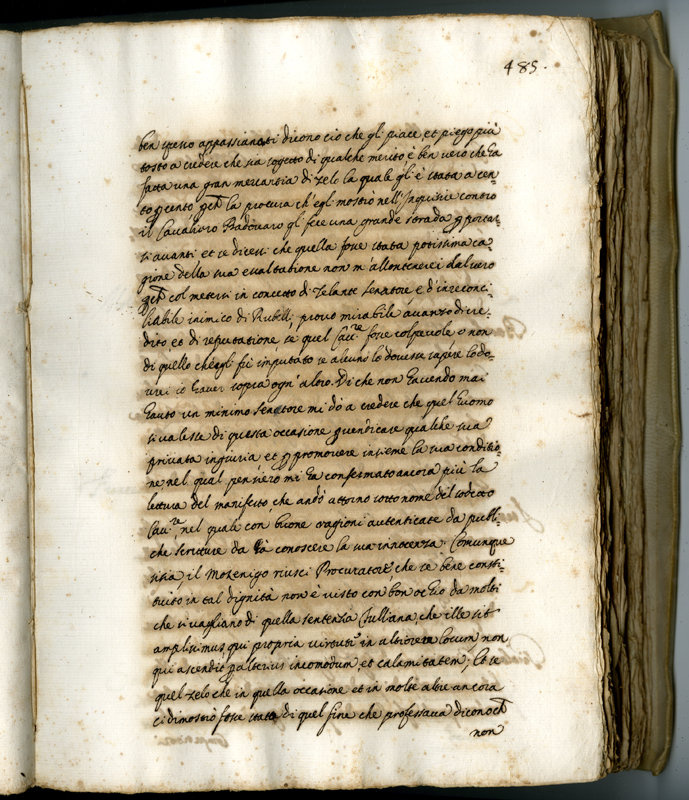 485.
ben spesso appassionati dicono ciò che gli piace, et piego più
tosto a credere che sia sogetto di qualche merito è ben vero che ha
fatta una gran mercantia di zelo la quale gl'è stata a cen-
to p cento pch la protura ch'egli mostrò nell'Inquirir contro
il Cavaliero Badovaro gl fece una grande strada p portar-
si avanti et se dicessi che quella fosse stata potissima ca-
gione della sua essaltatione non m'allontenerei dal vero
pch col metersi in concetto di Zelante Senatore, e d'inreconci-
liabile inimico di Rubelli, provò mirabile avanzo di cre-
dito et di reputatione se quel Cau.re fosse colpevole o non
di quello ch'egli fu imputato se alcuno lo dovesse sapere lo do-
urei io haver sopra ogn'altro. Di che non havendo mai
hauto un minimo sentore mi dò a credere che quel huomo
si valesse di questa occasione p vendicare qualche sua
privata ingiuria et p promovere insieme la sua conditio-
ne nel qual pensiero mi ha confermato ancora più la
lettura del manifesto, che andò attorno sotto nome del sodetto
Cau.re, nel quale con buone ragioni autenticate da publi-
che scritture da à conoscere la sua innocenza. Comunque
sisia, il Mozenigo riuscì Procuratore, che se bene consti-
tuito in tal dignità non è visto con bon occhio da molti
che si vagliano di quella sentenza Tulliana, che ille sit
amplissimus, qui propria virtute in altiorem locum, non
qui ascendit p alterius incomodum, et calamitatem; Et se
quel zelo che in quella occasione et in molte altre ancora
ci dimostrò fosse stato di quel fine che professava dicono ch
non